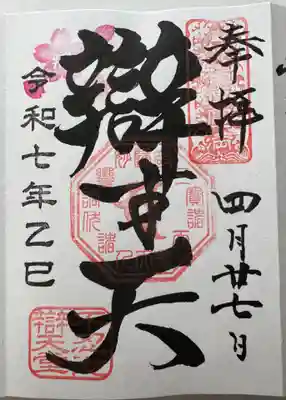 奉拝
四月廿七日
辯才天
令和七年乙巳